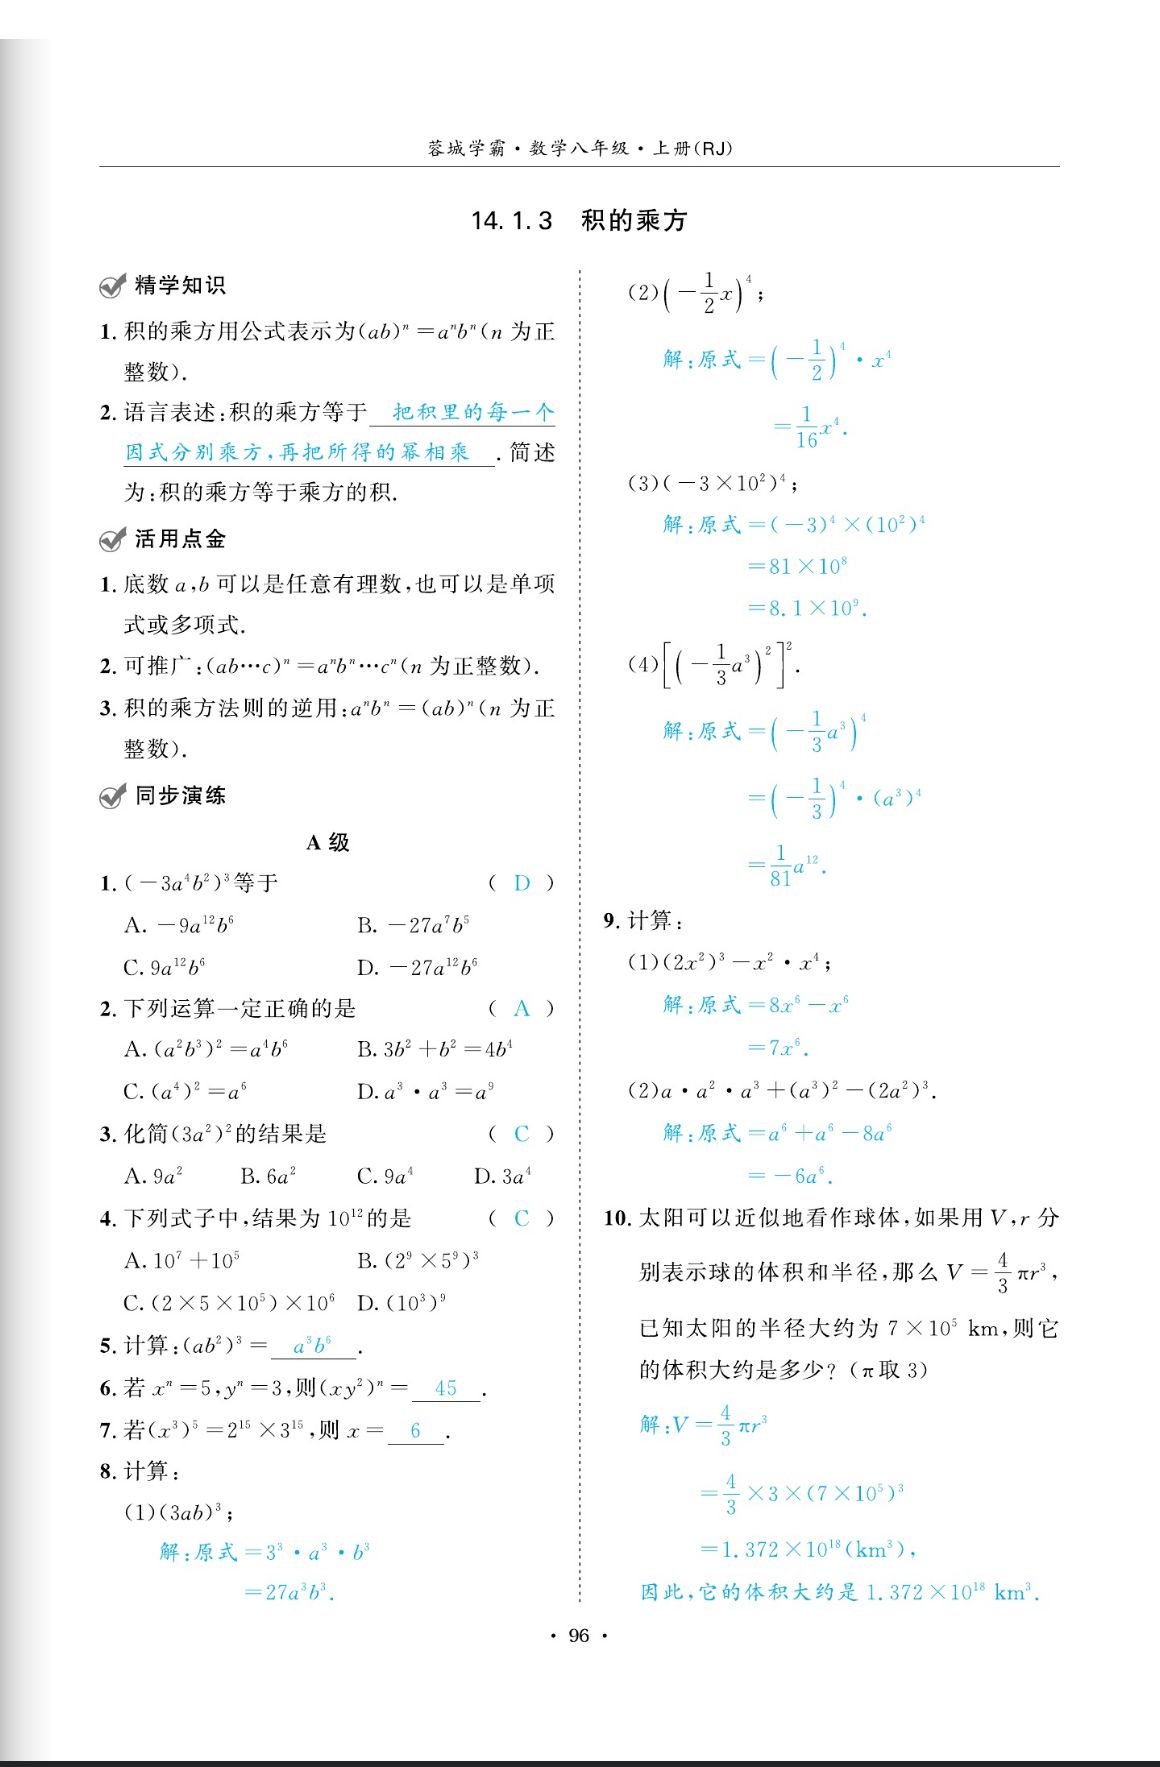 蓉城学霸·数学八年级·上册(RJ)
14.1.3 积的乘方
精学知识
1. 积的乘方用公式表示为(ab)ⁿ=aⁿbⁿ(n 为正
整数).
2. 语言表述:积的乘方等于 把积里的每一个
因式分别乘方,再把所得的幂相乘 .简述
为:积的乘方等于乘方的积.
活用点金
1. 底数 a,b 可以是任意有理数,也可以是单项
式或多项式.
2. 可推广:(ab…c)ⁿ=aⁿbⁿ…cⁿ(n 为正整数).
3. 积的乘方法则的逆用:aⁿbⁿ=(ab)ⁿ(n 为正
整数).
同步演练
A 级
1. (-3a⁴b²)³等于 ( D )
A. -9a¹²b⁶ B. -27a⁷b⁵
C. 9a¹²b⁶ D. -27a¹²b⁶
2. 下列运算一定正确的是 ( A )
A. (a²b³)²=a⁴b⁶ B. 3b²+b²=4b⁴
C. (a⁴)²=a⁶ D. a³·a³=a⁹
3. 化简(3a²)²的结果是 ( C )
A. 9a² B. 6a² C. 9a⁴ D. 3a⁴
4. 下列式子中,结果为 10¹²的是 ( C )
A. 10⁷+10⁵ B. (2⁹×5⁹)³
C. (2×5×10⁵)×10⁶ D. (10³)⁹
5. 计算:(ab²)³= a³b⁶ .
6. 若 xⁿ=5,yⁿ=3,则(xy²)ⁿ= 45 .
7. 若(x³)⁵=2¹⁵×3¹⁵,则 x= 6 .
8. 计算:
(1)(3ab)³;
解:原式=3³·a³·b³
=27a³b³.
(2)(-1/2x)⁴;
解:原式=(-1/2)⁴·x⁴
=1/16x⁴.
(3)(-3×10²)⁴;
解:原式=(-3)⁴×(10²)⁴
=81×10⁸
=8.1×10⁹.
(4)[(-1/3a³)²]².
解:原式=(-1/3a³)⁴
=(-1/3)⁴·(a³)⁴
=1/81a¹².
9. 计算:
(1)(2x²)³-x²·x⁴;
解:原式=8x⁶-x⁶
=7x⁶.
(2)a·a²·a³+(a³)²-(2a²)³.
解:原式=a⁶+a⁶-8a⁶
=-6a⁶.
10. 太阳可以近似地看作球体,如果用 V,r 分
别表示球的体积和半径,那么 V=4/3πr³,
已知太阳的半径大约为 7×10⁵ km,则它
的体积大约是多少? (π取 3)
解:V=4/3πr³
=4/3×3×(7×10⁵)³
=1.372×10¹⁸(km³),
因此,它的体积大约是 1.372×10¹⁸ km³.
·96·